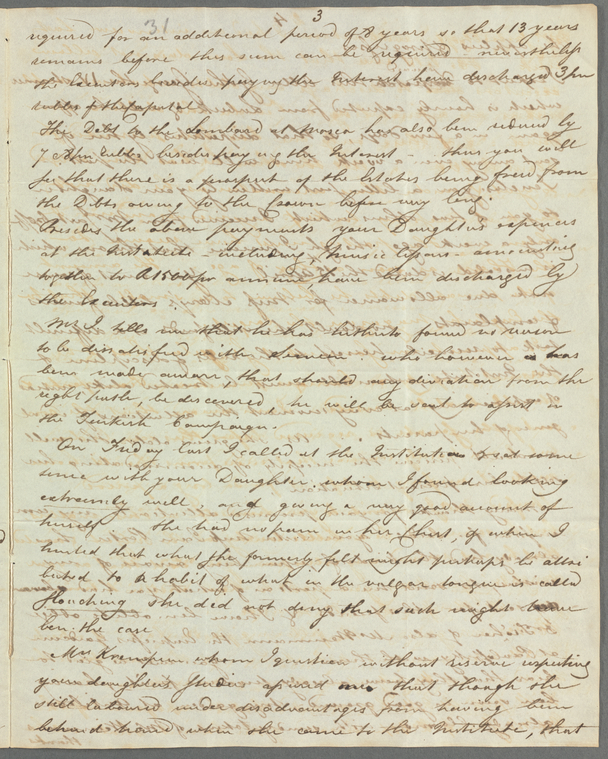 3
31
required for an additional period of 8 years so that 13 years
remains before this sum can be required nevertheless
the Executors besides paying the Interest have discharged 3 pm
rubles of the Capital
The Debt to the Lombard at Moscow has also been reduced by
7 besides paying the Interest — thus you will
see that there is a prospect of the Estates being freed from
the Debts owing to the Crown before very long.
Besides the above payments your Daughters expences
at the Institute — including Music lessons — amounting
together to R1500 pr annum, have been discharged by
the Executors.
Mr I. tells me that he has hitherto found no reason
to be dissatisfied with who however has
been made aware, that should any deviation from the
right path, be discovered he will be sent to assist in
the Turkish Campaign.
On Friday last I called at the Institution & sat some
time with your Daughter, whom I found looking
extremely well, and giving a very good account of
herself — She had no pain in her Chest, & when I
hinted that what she formerly felt might perhaps be attri
buted to a habit of what in the vulgar tongue is called
slouching she did not deny that such might have
been the case
Mrs whom I question without reserve respecting
your daughters Studies assured me that though she
still laboured under disadvantages from having been
behind hand when she came to the Institute, that